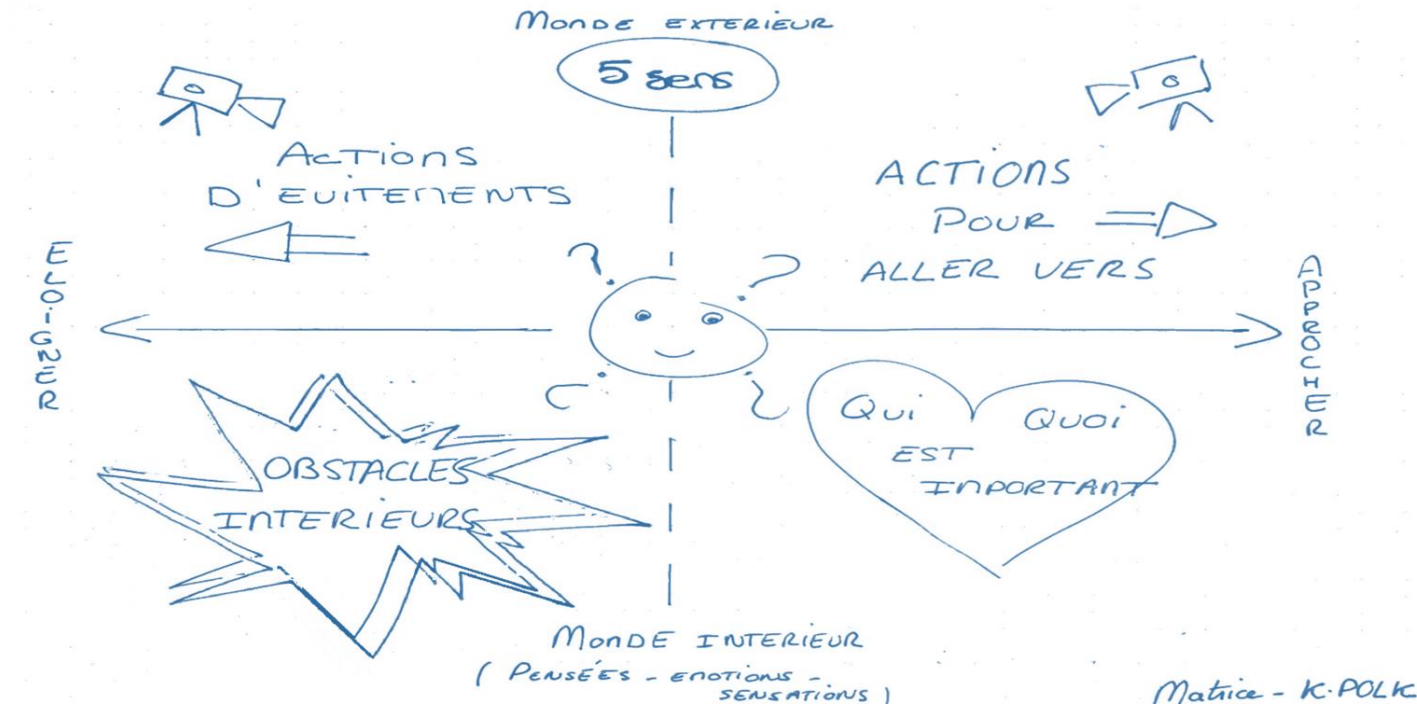 MONDE EXTERIEUR
5 sens
ACTIONS
D'EVITEMENTS
ACTIONS
POUR
ALLER VERS
ELOIGNER
APPROCHER
? ? ? ?
OBSTACLES
INTERIEURS
QUI QUOI
EST
IMPORTANT
MONDE INTERIEUR
( PENSÉES - EMOTIONS -
SENSATIONS )
Matrice - K. POLK